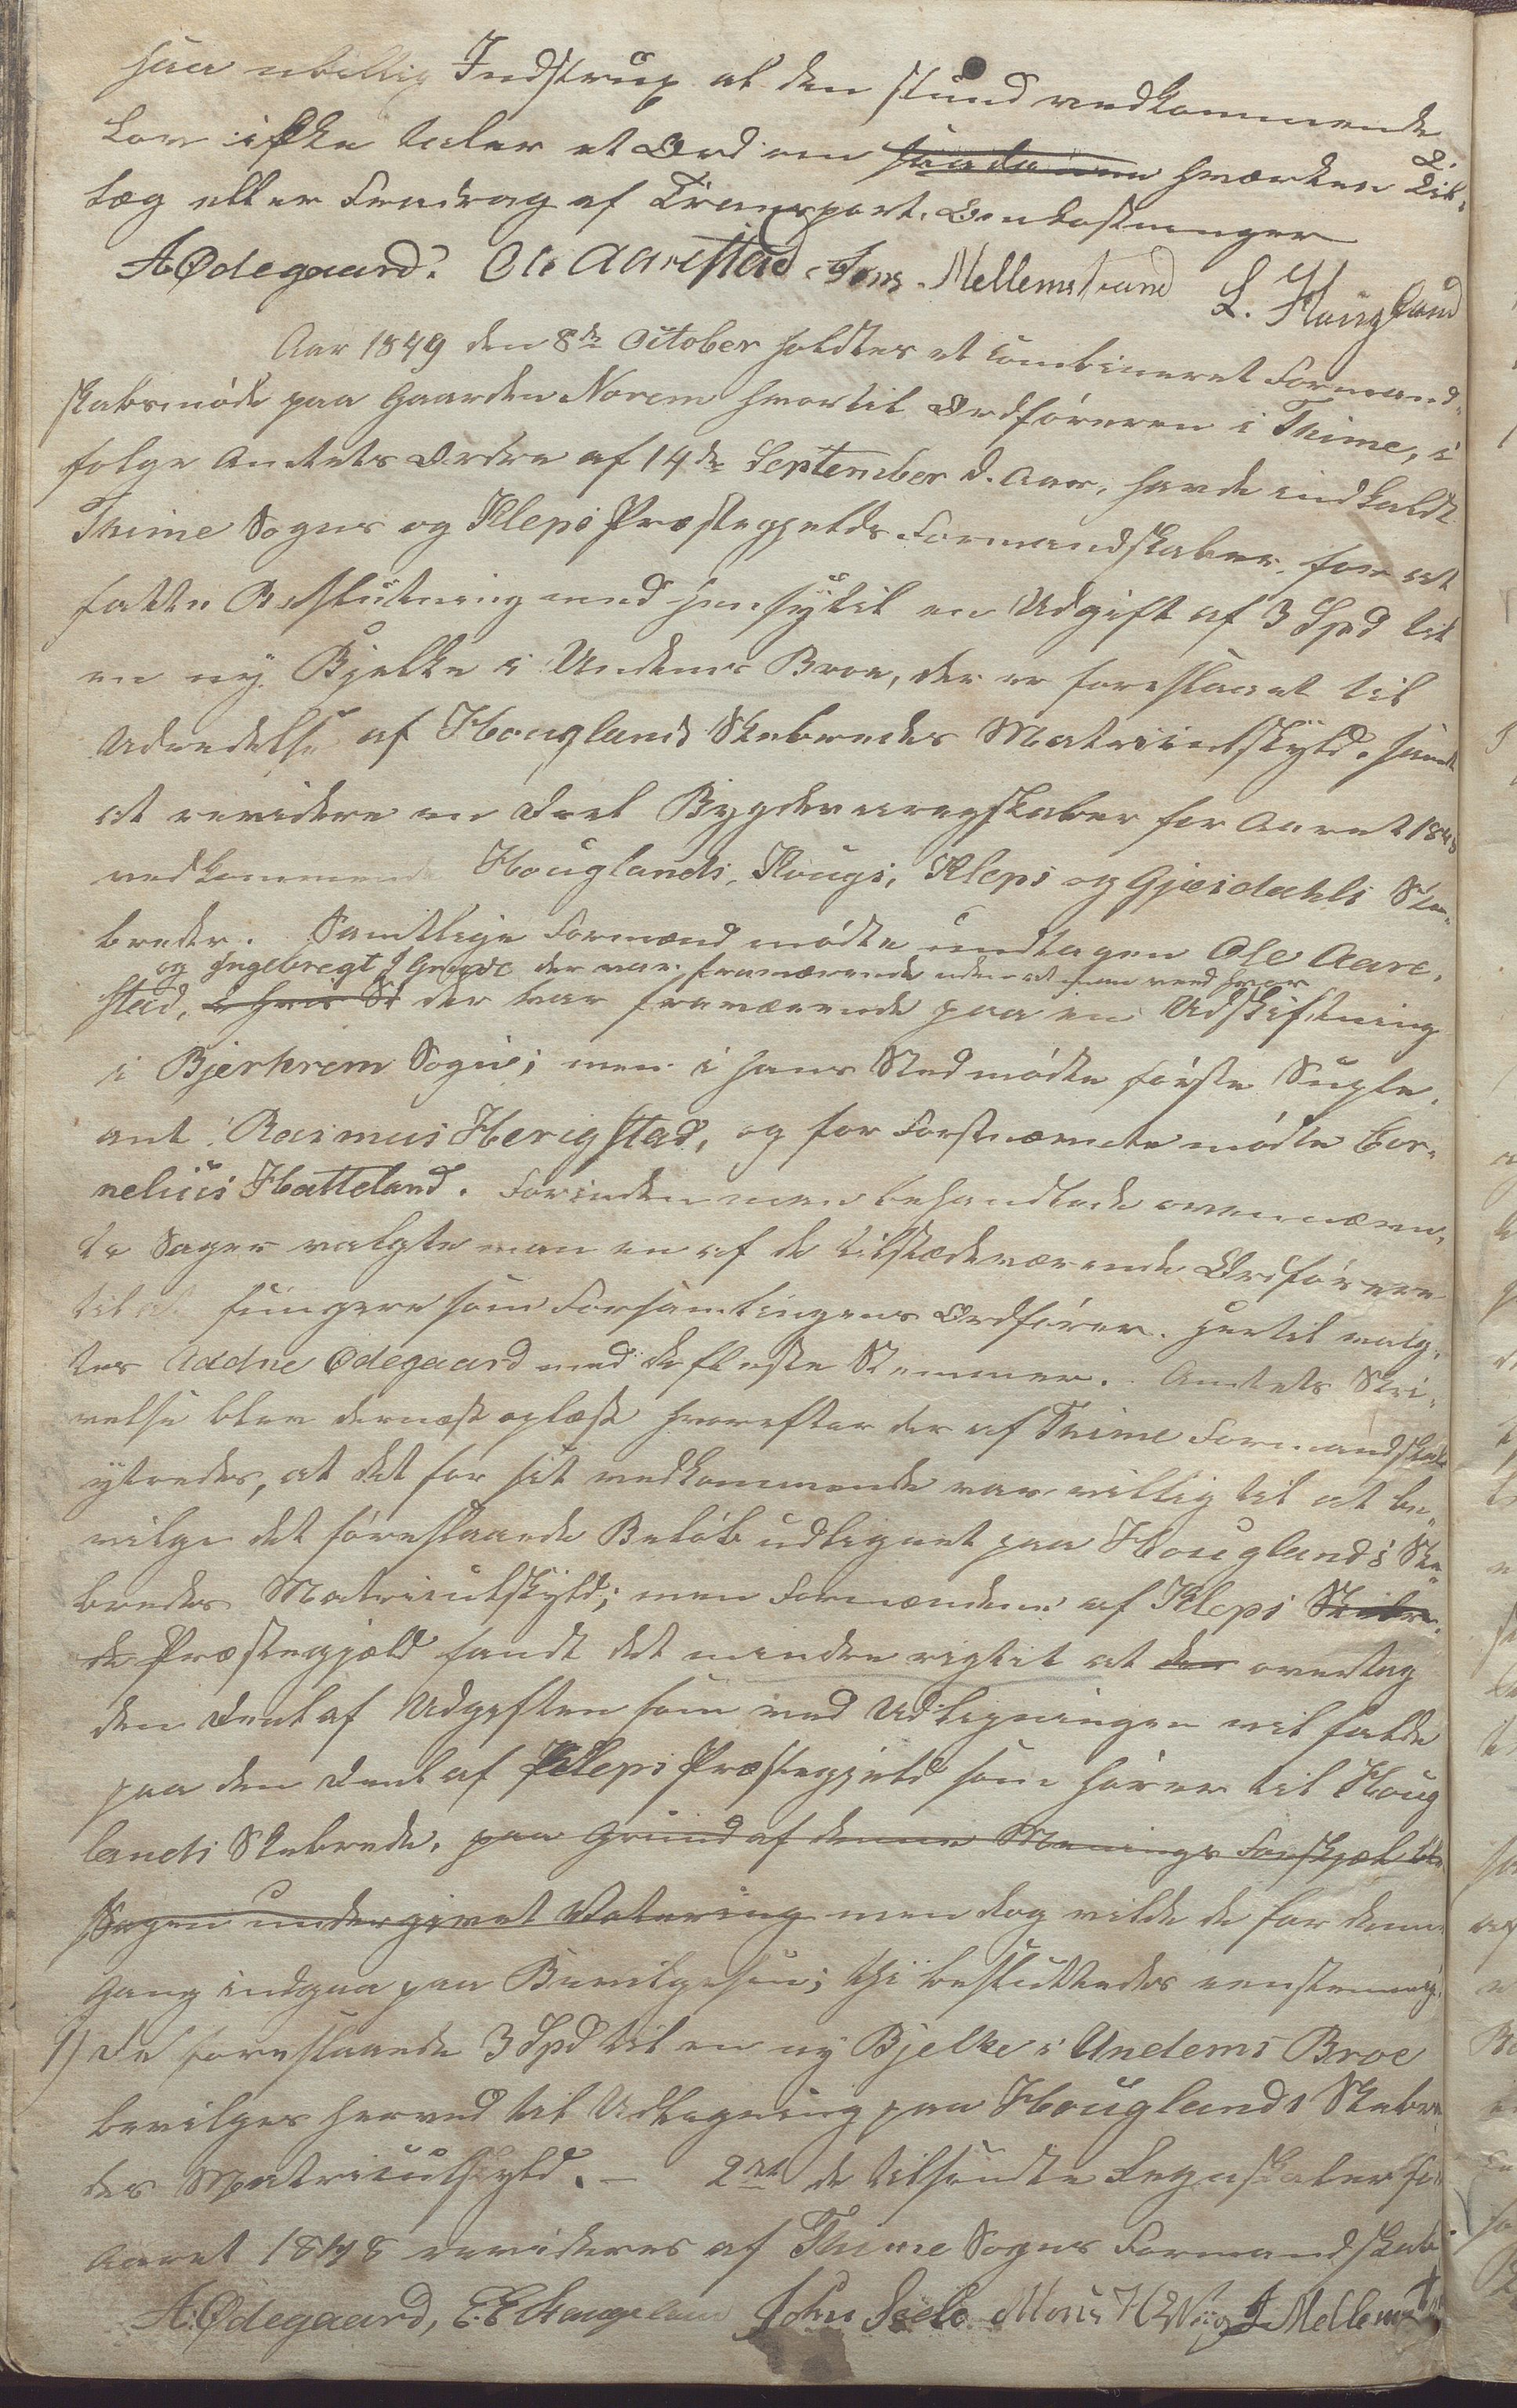 saa ubillig Indstrup at den stund vedkommende
Lov ikke taler et Ord om saadanne hværken Til-
læg eller Fradrag af Transport-Omkostninger
A Ødegaard. Ole Aarestad. Jens. Mellemstrand L. Houghland
Aar 1849 den 8de October holdtes et combineret Formand-
skabsmøde paa Gaarden Norem hvortil Ordføreren i Thime, i
følge Amtets Ordre af 14de September d. Aar, havde indkaldt
Thime Sogns og Klepi Præstegjelds Formandskaber, for at
fatte Beslutning med hensyn til en Udgift af 3 Spd til
en ny Bjelke i Undems Broe, der er foreslaaet til
Udredelse af Houglands Skebredes Matriculskyld. samt
at revidere en Deel Bygderegnskaber for Aaret 1848
vedkommende Houglands, Kougs, Klepi og Gjæsdahls Ske-
breder. Samtlige Formænd mødte undtagen Ole Aare-
og Ingebregt Grave der var fraværende uden at man veed hvor
stad, i hvis St der var fraværende paa en Udskiftning
i Bjerkrem Sogn; men i hans Sted mødte første Suple-
ant Rasmus Herigstad, og for Forstnævnte mødte Cor-
nelius Hatteland. Forinden man behandlede ovennævn-
te Sager valgte man en af de tilstædeværende Ordførere
til at fungere som Forsamlingens Ordfører. Hertil valg-
tes Addne Ødegaard med de fleste Stemmer. Amtets Skri-
velse blev dernæst oplæst hvorefter der af Thime Formandskab
ytredes, at det for sit vedkommende var villig til at be-
vilge det foreslaaede Beløb udlignet paa Houglands Ske-
bredes Matriculskyld; men Formændene af Klepi Skibre-
de Præstegjæld fandt det mindre rigtit at der overtog
den Deel af Udgiften som ved Udligningen vil falde
paa den Deel af Klepi Præstegjeld som hører til Houg
lands Skebrede. paa Grund af denne Menings Forskjæl blev
Sagen undergivet Votering men dog vilde de for denne
Gang indgaa paa Bevilgelsen; thi besluttedes eenstemmig:
1) De foreslaaede 3 Spd til en ny Bjelke i Undems Broe
bevilges herved til Udligning paa Houglands Skebre-
des Matriculskyld. – 2det de tilsendte Regnskaber for
Aaret 1848 revideres af Thime Sogns Formandskab
A. Ødegaard, E. E. Hougeland John Sælo Mons H Wiig J. Mellemstrand